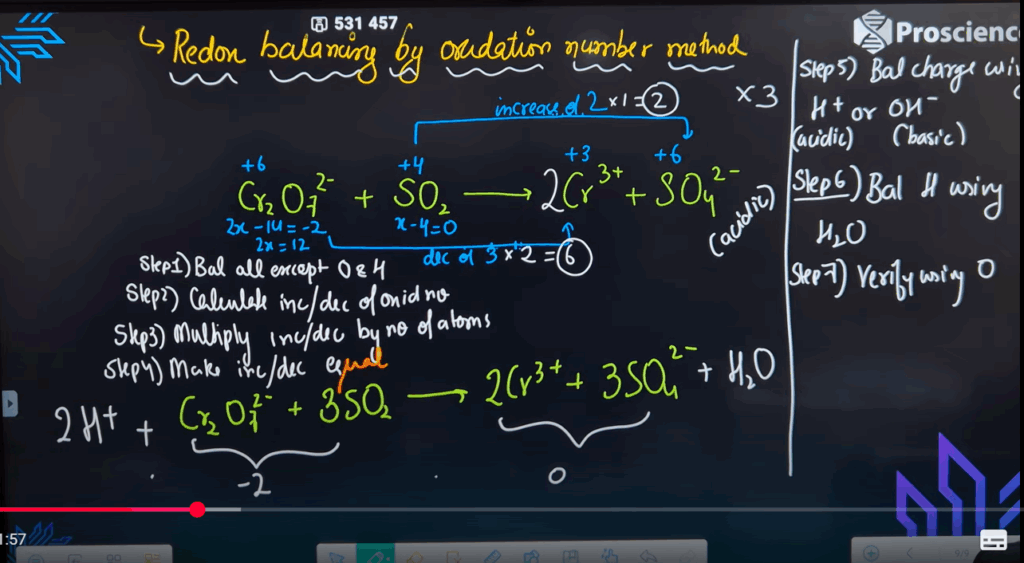 531 457
Proscienc
↳ Redox balancing by oxidation number method
increase of 2 ×1 = 2
×3
+6 +4 +3 +6
Cr₂O₇²⁻ + SO₂ ⟶ 2Cr³⁺ + SO₄²⁻
(acidic)
2x -14 = -2
2x = 12
x-4=0
dec of 3 ×2 = 6
Step1) Bal all except O & H
Step2) Calculate inc/dec of oxid no
Step3) Multiply inc/dec by no of atoms
Step4) Make inc/dec equal
2H⁺ + Cr₂O₇²⁻ + 3SO₂ ⟶ 2Cr³⁺ + 3SO₄²⁻ + H₂O
-2
0
Step 5) Bal charge
H⁺ or OH⁻
(acidic) (basic)
Step 6) Bal H using
H₂O
Step 7) Verify using O
1:57
9/9